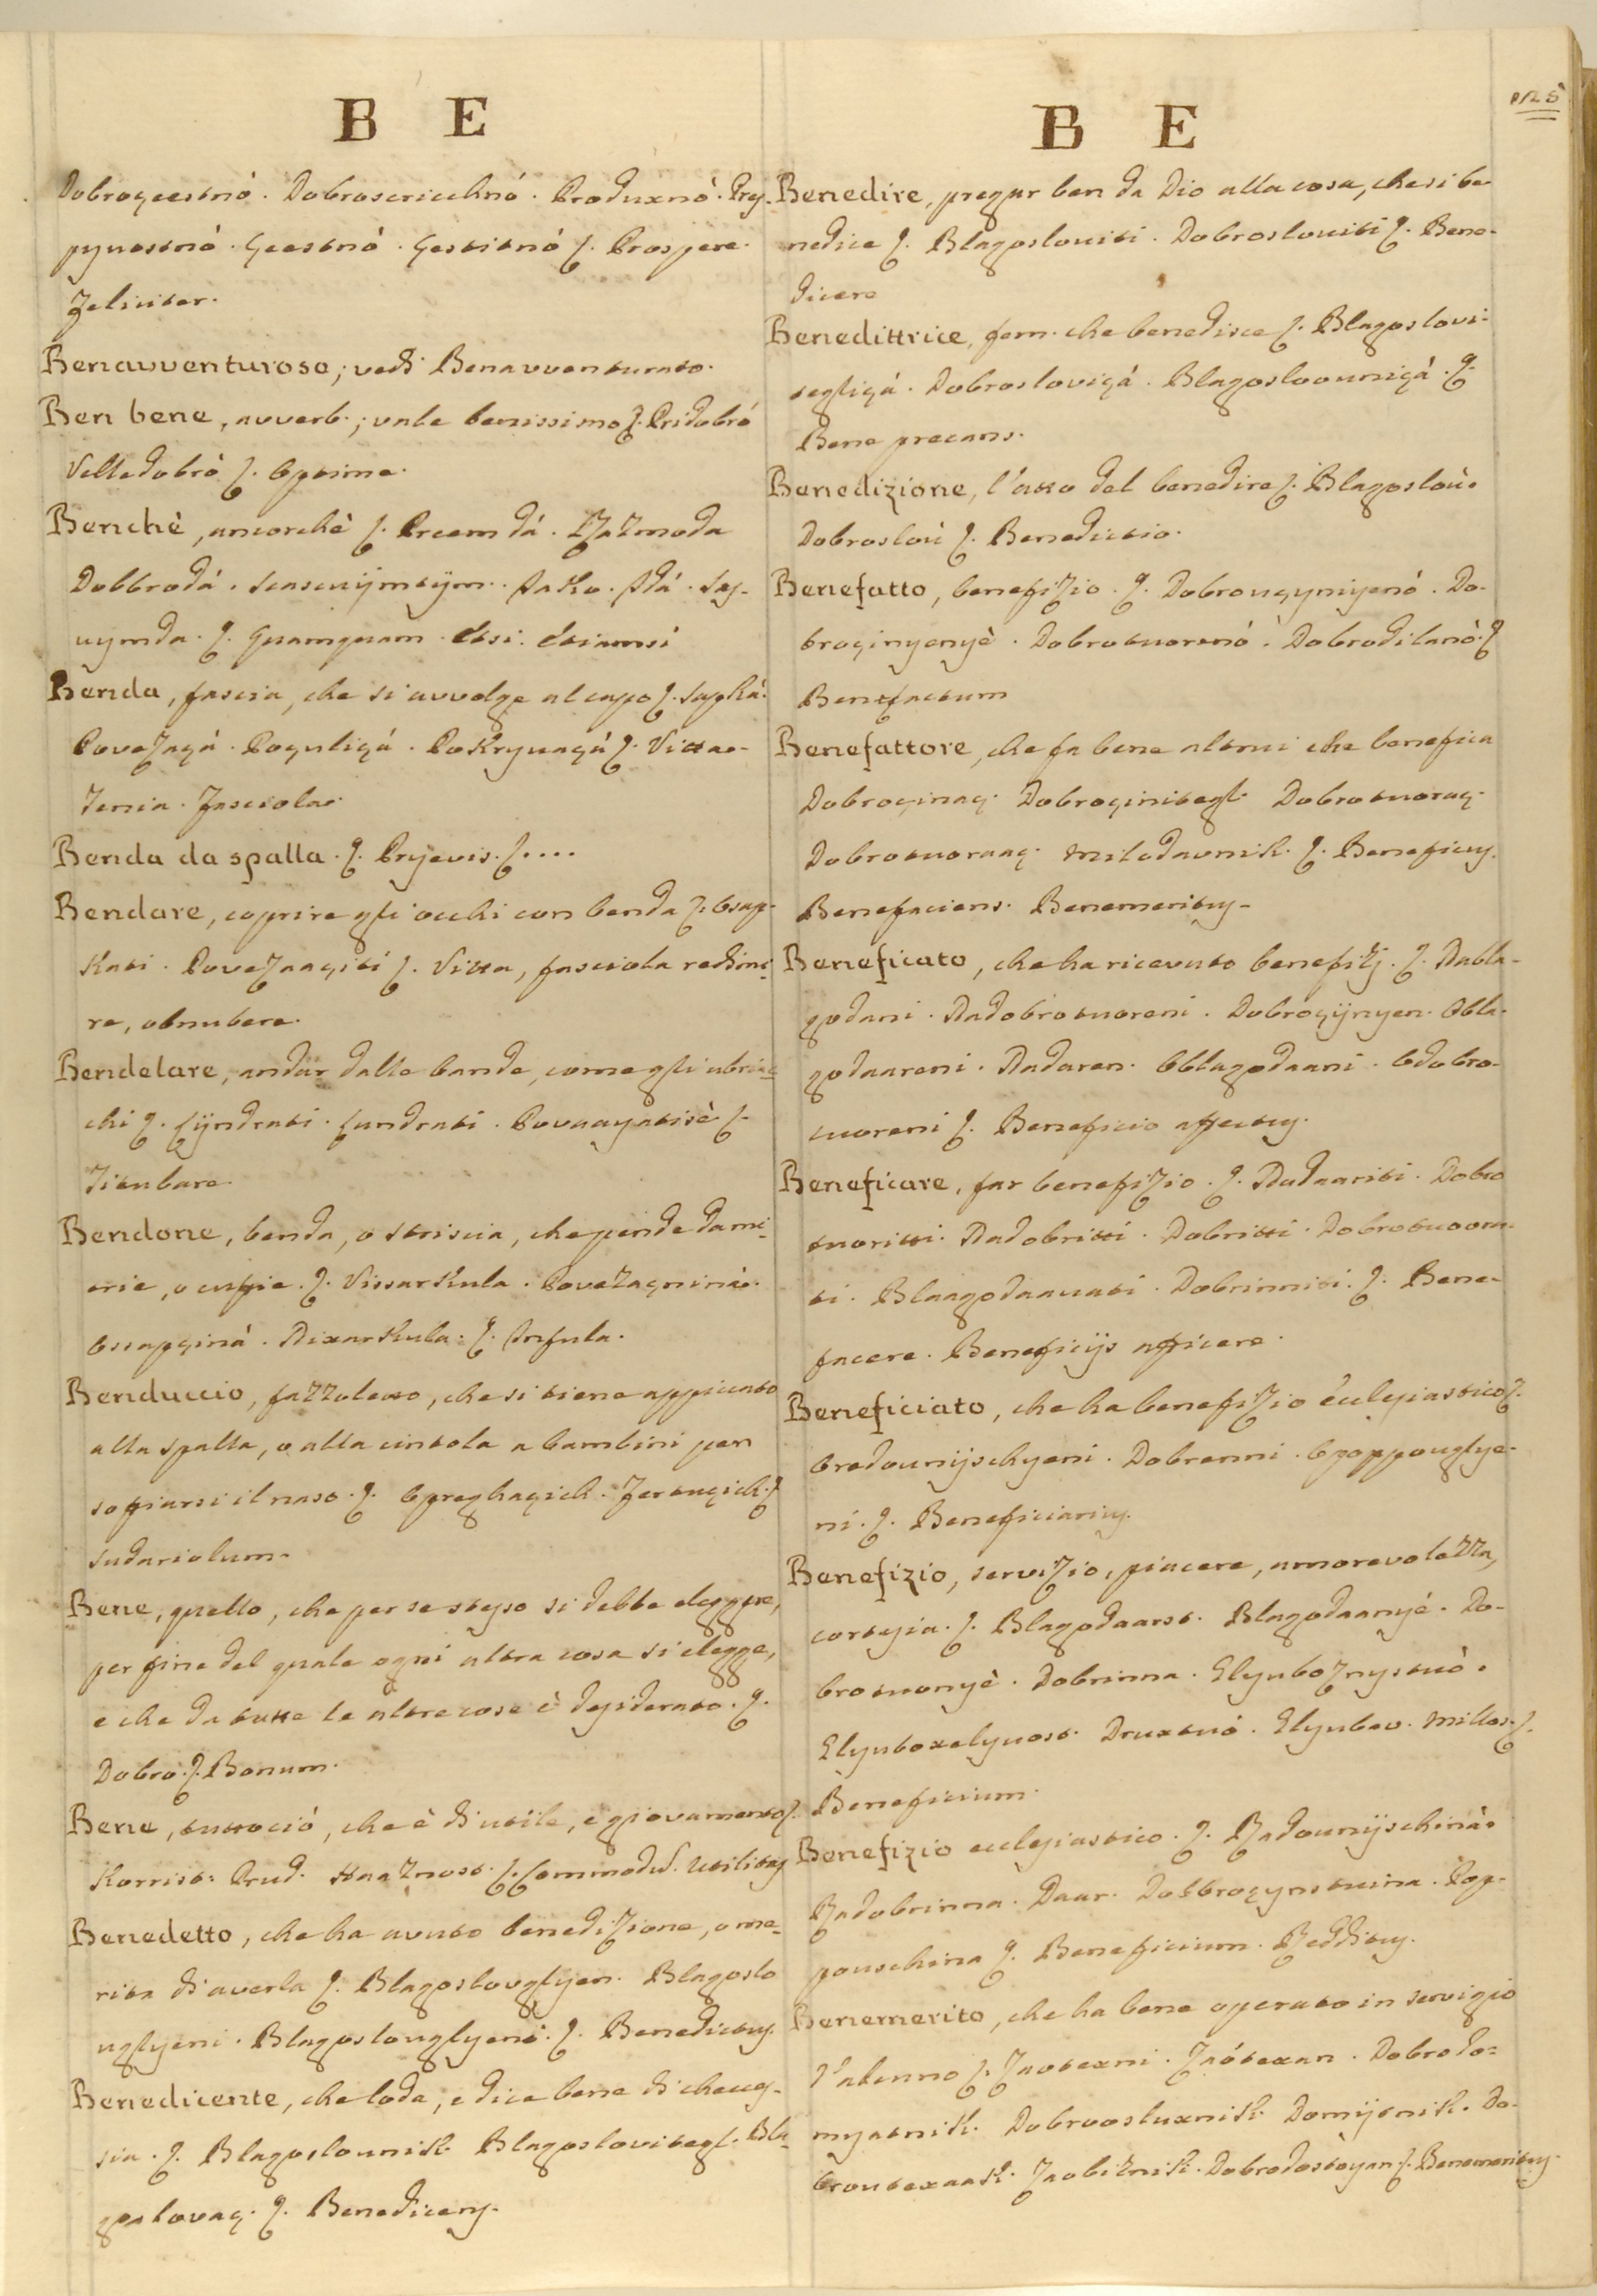 B E
Dobroçeestnò. Dobroscricchnó. Produxnò. Prj-
pyuostnò. Çeestnò. Çestitnó ʃ. Prospere.
Feliciter.
Benavventuroso; vedi Benavventurato.
Ben bene, avverb.; vale benissimo ʃ. Pridobró
Velledobrò ʃ. Optime.
Benchè, ancorchè ʃ. Preem dá.
Dobbrodá.
uymda. ʃ. Quamquam. Etsi. Etiamsi
Benda, fascia, che si avvolge al capo ʃ. Sapká.
Povezaçá. Poçuliçá. Pokryvaçá ʃ. Vittae.
Tenia. Fasciolae.
Benda da spalla. ʃ. Pryevis. ʃ....
Bendare, coprire gli occhi con benda ʃ. Osap-
kati. Povezaaçiti ʃ. Vitta, fasciola redimi-
re, obnubere.
Bendelare, andar dalle bande, come gli ubria-
chi ʃ. Çijndrati. Çundrati. Povaayatisè ʃ.
Titubare.
Bendone, benda, o striscia, che pende da mi-
trie, o cuffie. ʃ. Vissarkula. Povezaçninàe.
Ossapçinà. Nixarkula. ʃ. Infula.
Benduccio, fazzoletto, che si tiene appiccato
alla spalla, o alla cintola a bambini per
soffiarsi il naso. ʃ. Opreghaçich. Fertuçich. ʃ
Sudariolum.
Bene, quello, che per se stesso si debbe eleggere,
per fine del quale ogni altra cosa si elegge,
e che da tutte le altre cose è desiderato. ʃ.
Dobro. ʃ. Bonum.
Bene, tuttociò, che è di utile, e giovamento ʃ.
Korrist. Prud. ʃ. Commodum. Utilitas
Benedetto, che ha avuto benedizione, o me-
rita di averla ʃ. Blagoslovglyen. Blagoslo
uglyeni. Blagoslouglyenò. ʃ. Benedictus.
Benedicente, che loda, e dice bene di cheues-
sia. ʃ. Blagoslounik. Blagoslovitegl. Bla-
goslovaç. ʃ. Benedicens.
B E
125
Benedire, pregar ben da Dio alla cosa, che si be
nedice ʃ. Blagosloviti. Dobrosloviti ʃ. Bene-
dicere
Benedittrice, fem. che benedisce ʃ. Blagoslovi-
tegliçá. Dobrosloviçá. Blagosloouniçá. ʃ.
Bene precans.
Benedizione, l'atto del benedire ʃ. Blagoslòv.
Dobroslov ʃ. Benedictio.
Benefatto, benefizio. ʃ. Dobrouçyniyenó. Do-
broçinyenyè. Dobrotuorenó. Dobrodilanò. ʃ
Benefactum
Benefattore, che fa bene altrui che benefica
Dobroçinaç. Dobroçinitegl. Dobrotuoraç.
Dobrotuoraaç. Milodavnik. ʃ. Beneficus.
Benefaciens. Benemeritus.
Beneficato, che ha ricevuto benefizj. ʃ. Nabla-
godani. Nadobrotuoreni. Dobroçijnyen. Obla-
godaareni. Nadaren. Oblagodaani. Odobro-
tuoreni ʃ. Beneficio affectus.
Beneficare, far benefizio. ʃ. Nadaariti. Dobro
tuoritti. Nadobritti. Dobritti. Dobrotuoora-
ti. Blaagodaauati. Dobrinniti. ʃ. Bene-
facere. Beneficijs afficere.
Beneficiato, che ha benefizio ecclesiastico ʃ.
Oredounijschyeni. Dobrenni. Ogoppouglye-
ni. ʃ. Beneficiarius.
Benefizio, servizio, piacere, amorevolezza,
cortesia. ʃ. Blagodaarst. Blagodaanyé. Do-
brotuonyè. Dobrinna. Glyuboznystuò.
Glyuboxelyuost. Druxtuó. Glyubav. Millos. ʃ.
Beneficium.
Benefizio ecclesiastico. ʃ. Radounijschinà.
Nadobrinna. Daar. Dobbroçynstuina. Pop-
pouschina ʃ. Beneficium. Redditus.
Benemerito, che ha bene operato in servigio
d'alcuno ʃ. Zaotexni. Zaótexan. Dobrodo-
myatnik. Dobrooslaxnik. Domijtnik. Do-
broutexaak. Zaobitnik. Dobrodostoyan ʃ. Benemeritus.